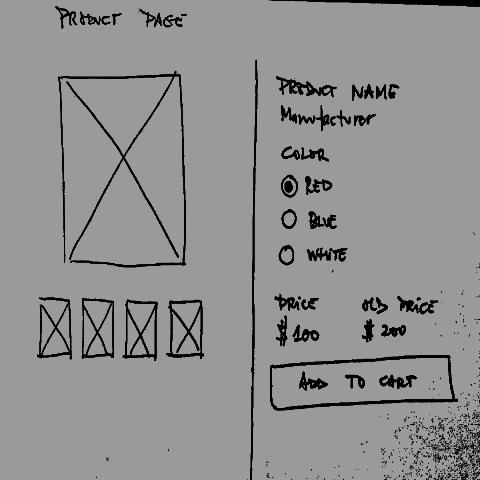 PRODUCT PAGE
PRODUCT NAME
Manufacturer
COLOR
RED
BLUE
WHITE
PRICE OLD PRICE
$100 $200
ADD TO CART